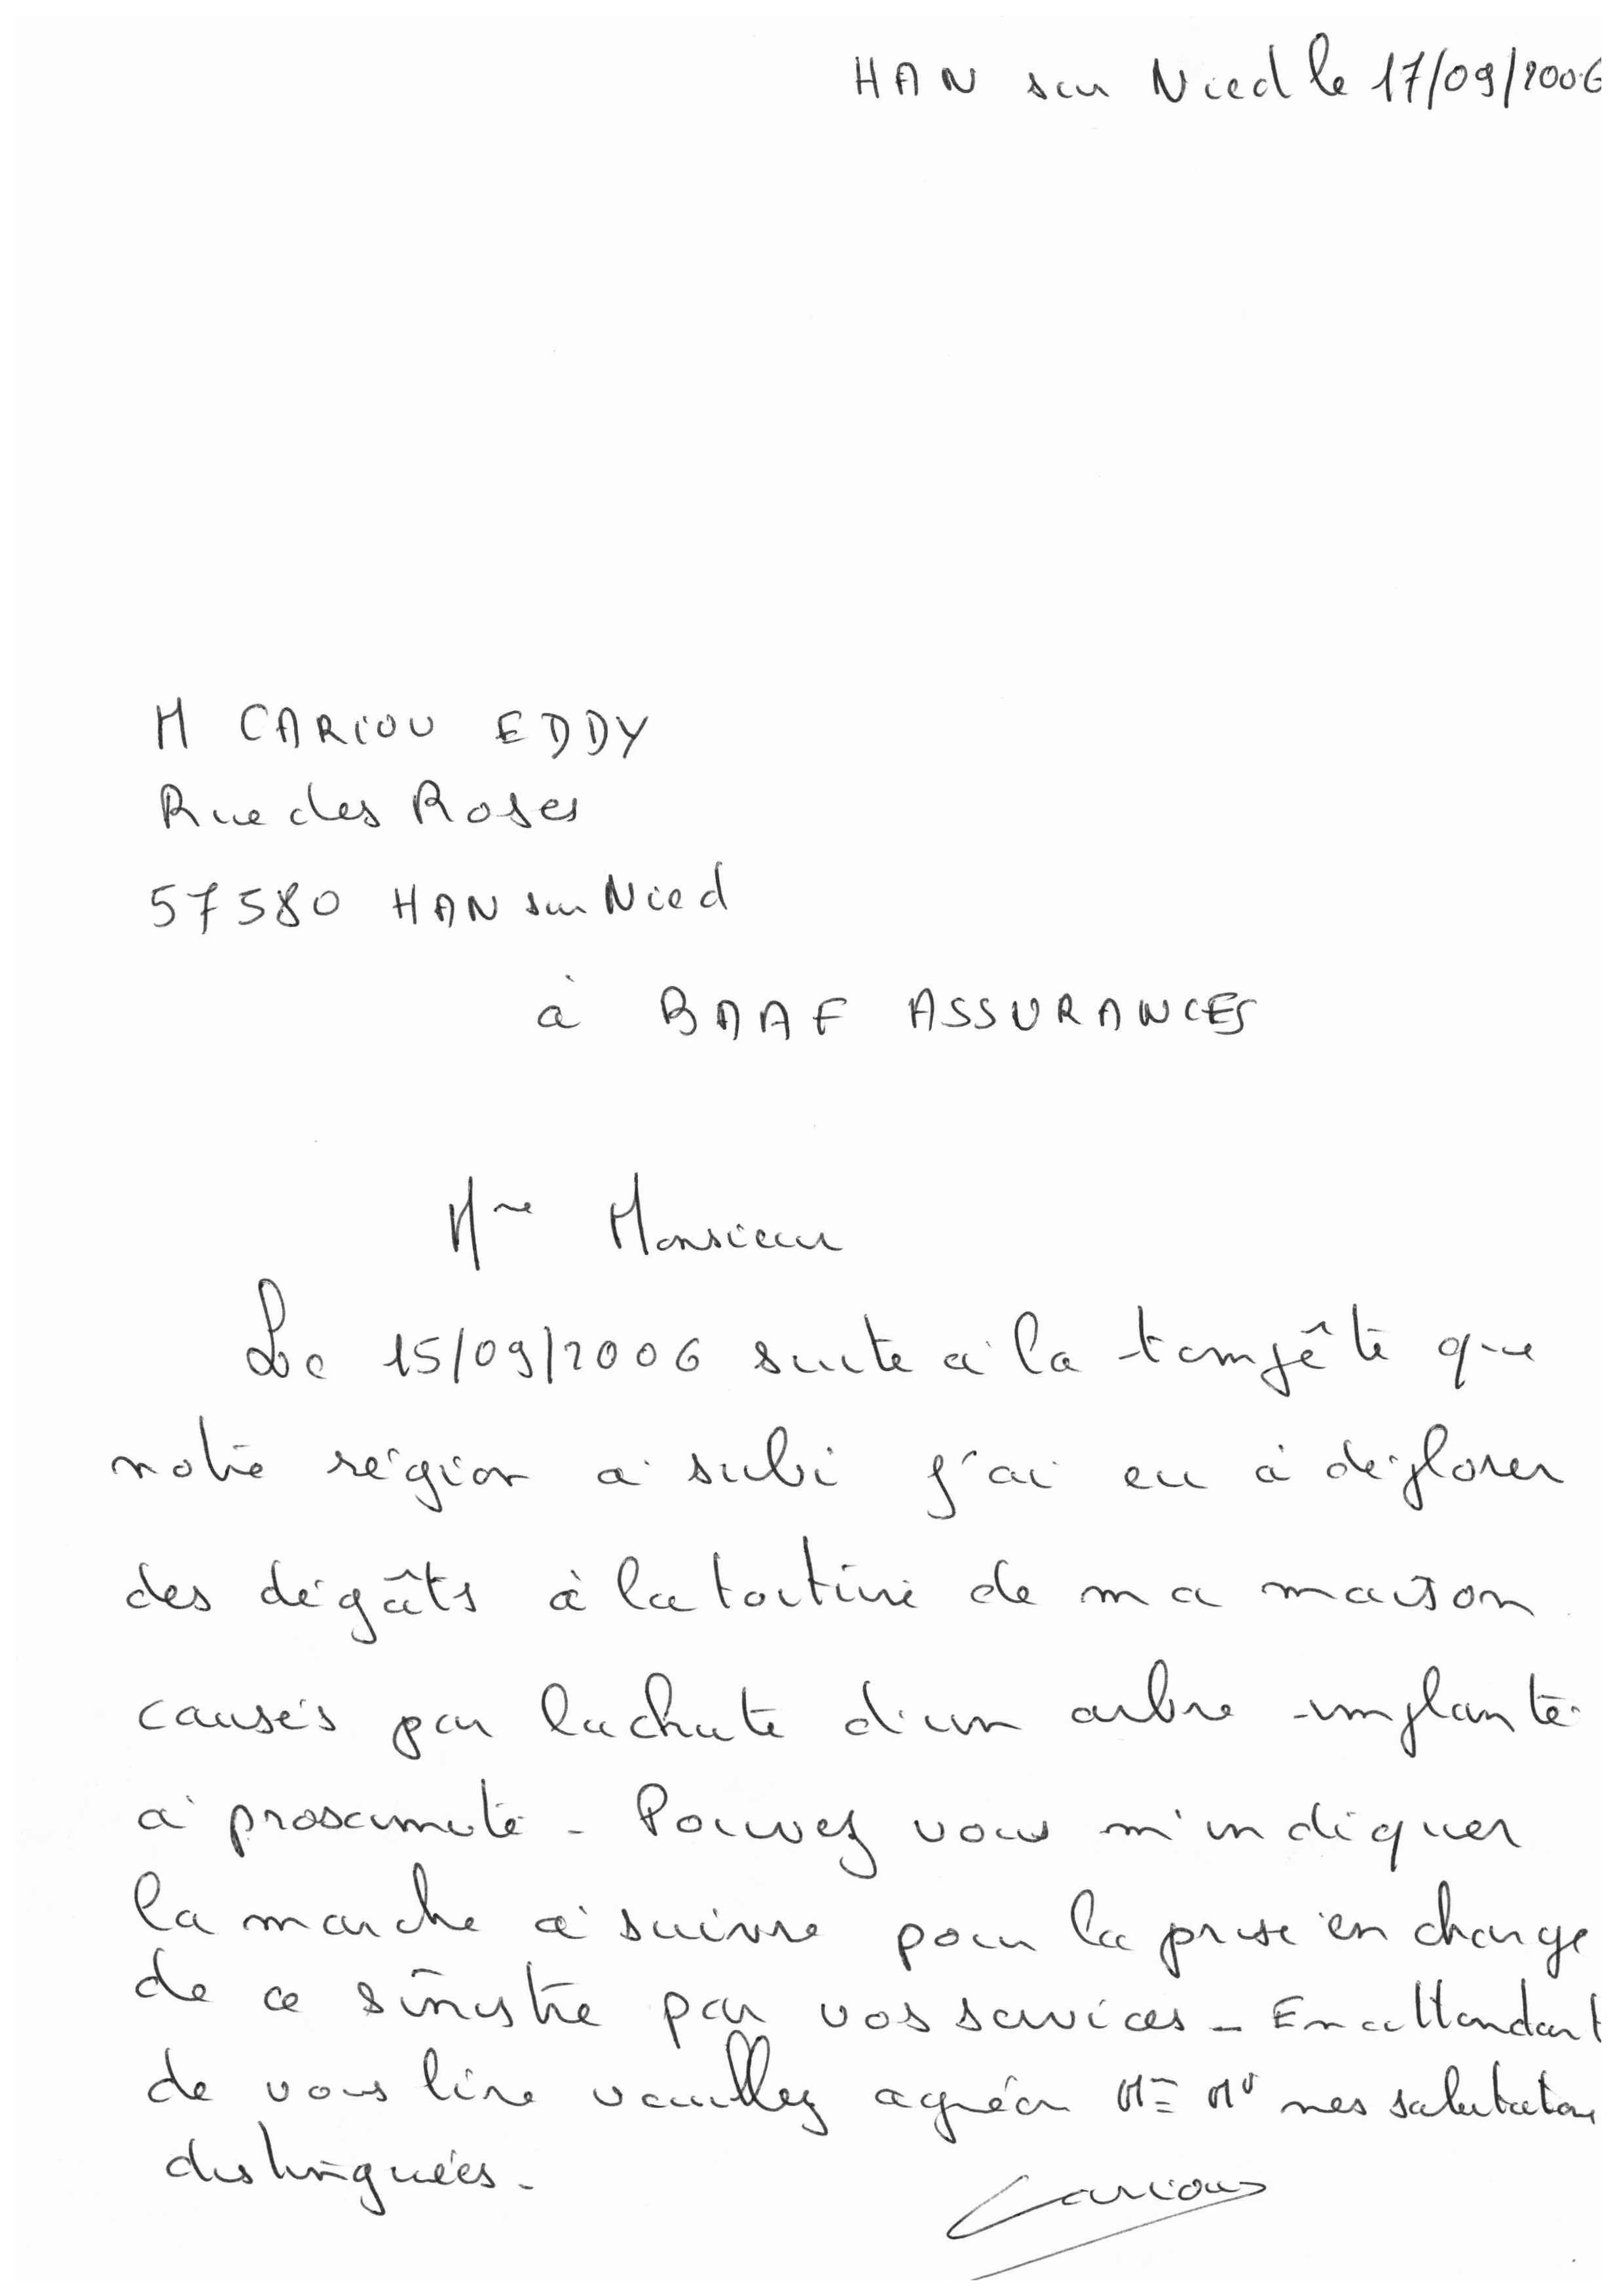 HAN sur Nied le 17/09/2006
M CARIOU EDDY
Rue des Roses
57580 HAN sur Nied
à BAAF ASSURANCES
Mme Monsieur
Le 15/09/2006 suite à la tempête que
notre région a subi j'ai eu à déplorer
des dégâts à la toiture de ma maison
causés par la chute d'un arbre implanté
à proximité - Pouvez vous m'indiquer
la marche à suivre pour la prise en charge
de ce sinistre par vos services - En attendant
de vous lire veuillez agréer Me Mr mes salutations
distinguées -
Cariou